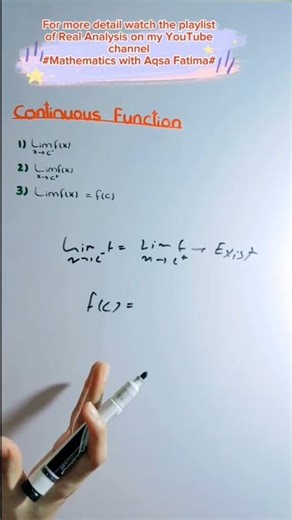 For more detail watch the playlist
of Real Analysis on my YouTube
channel
#Mathematics with Aqsa Fatima#
Continuous Function
1) Lim f(x)
x→c⁻
2) Lim f(x)
x→c⁺
3) Lim f(x) = f(c)
Lim f = Lim f → Exist
x→c⁻ x→c⁺
f(c) =